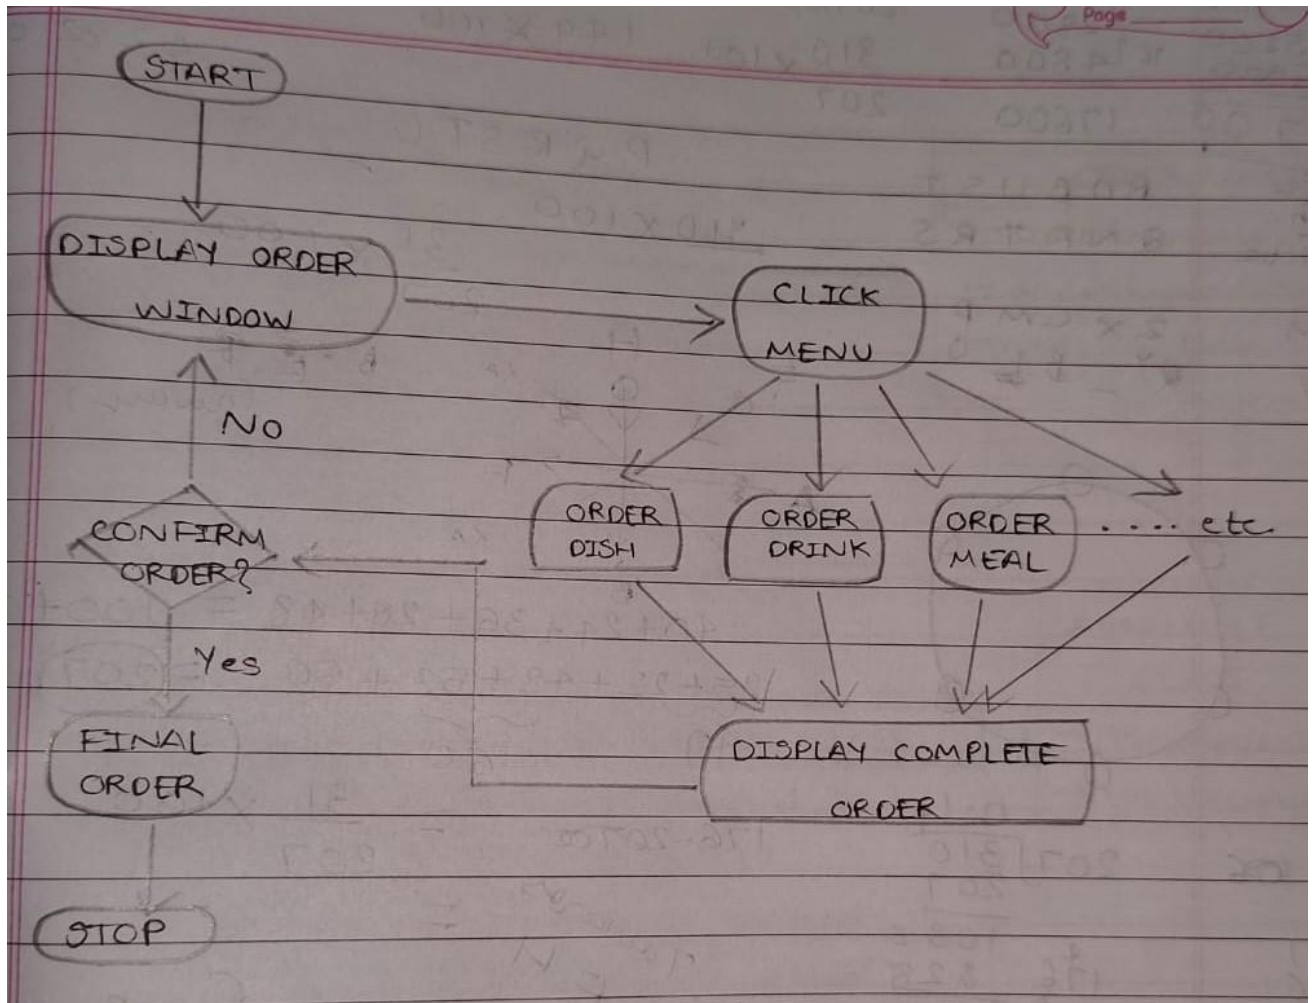 Page
START
DISPLAY ORDER
WINDOW
CLICK
MENU
No
ORDER
DISH
ORDER
DRINK
ORDER
MEAL
..... etc.
CONFIRM
ORDER?
Yes
FINAL
ORDER
DISPLAY COMPLETE
ORDER
STOP